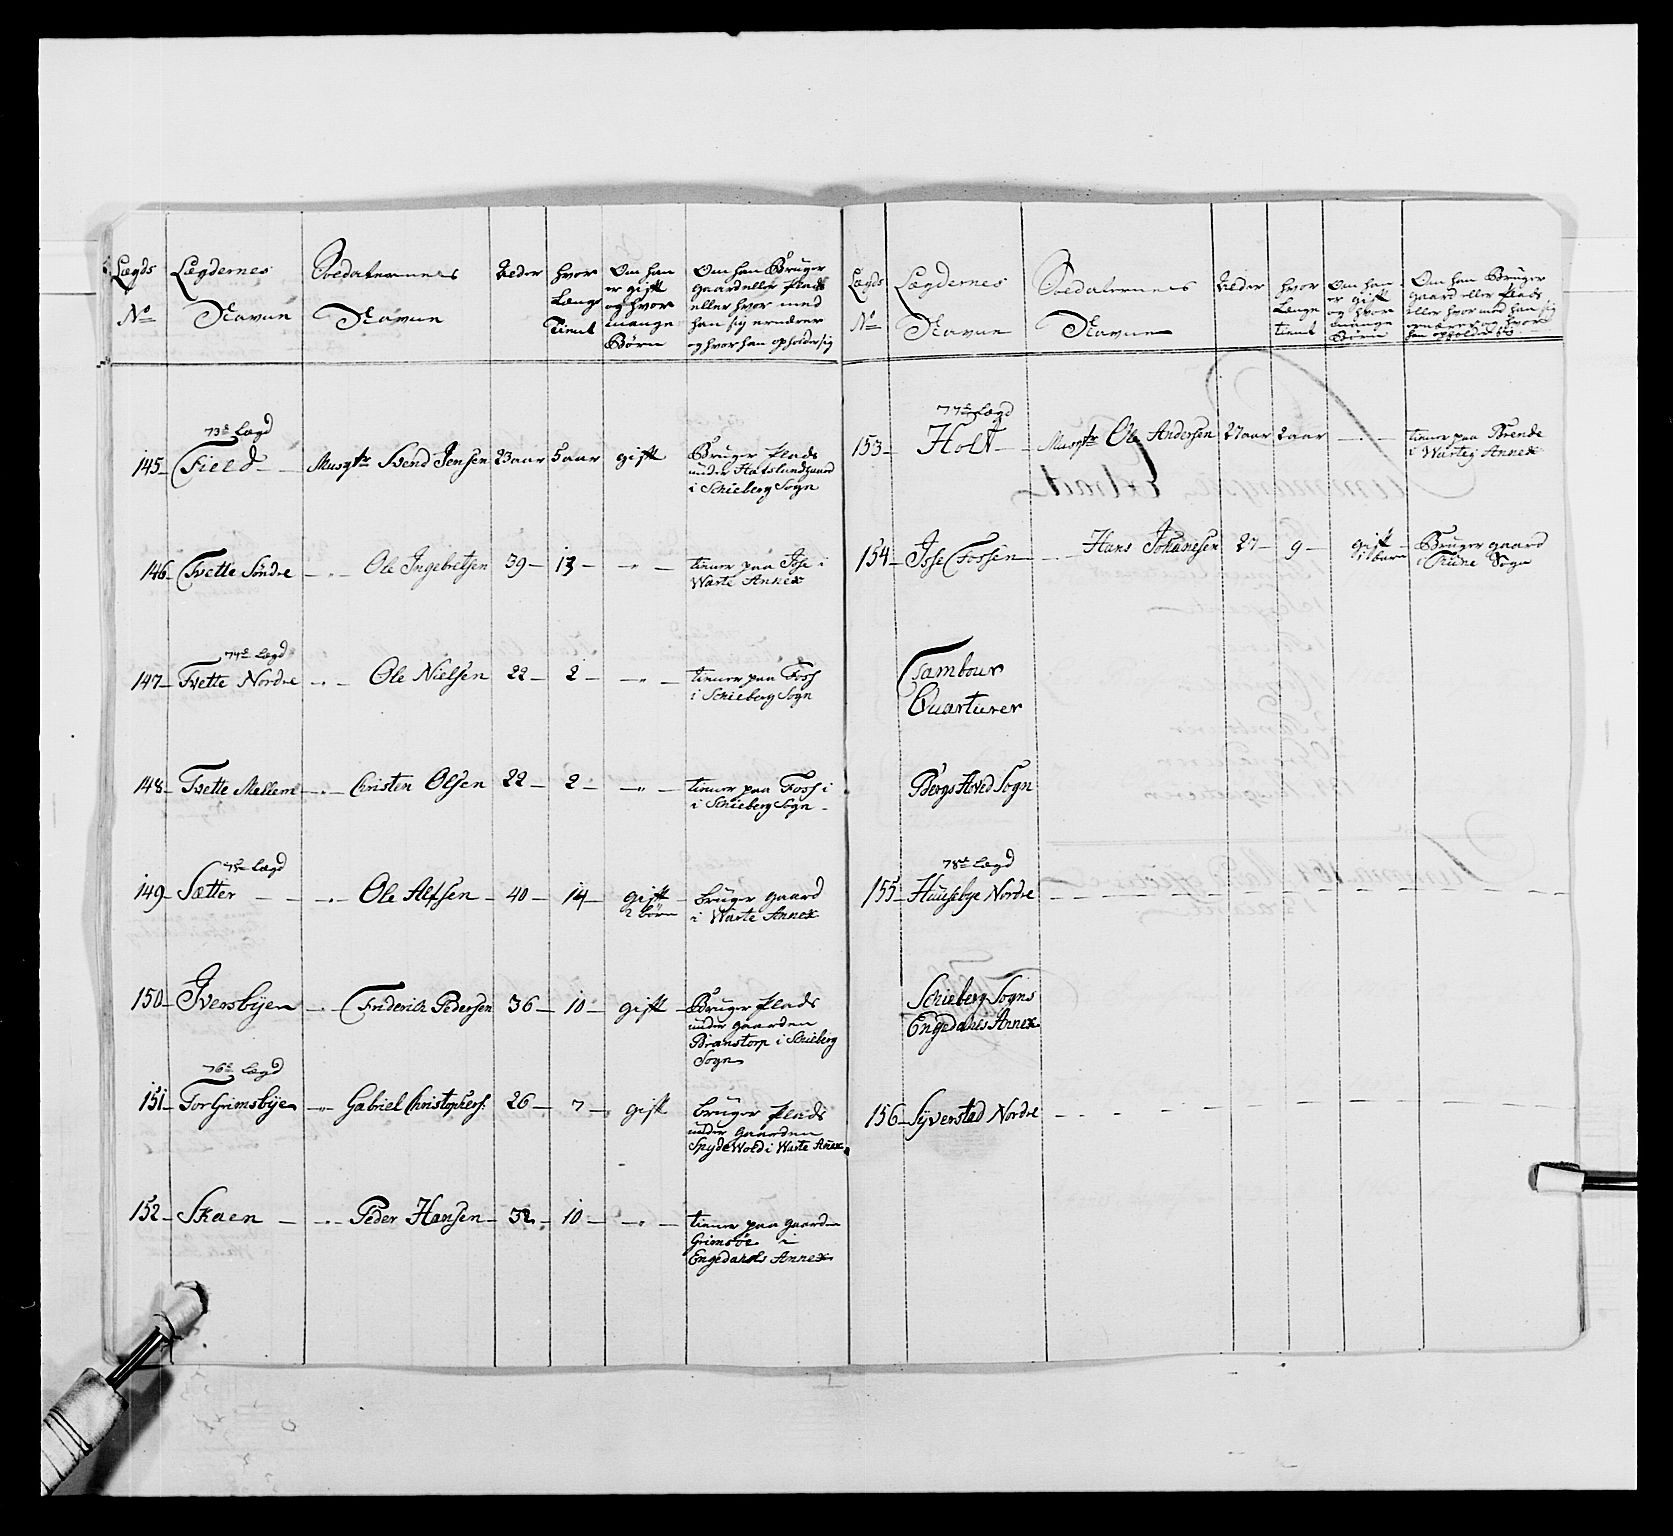 Lægds Lægdernes Soldaternes Alder hvor Om han Om han Bruger
No Navne Navne Længe er gift gaard eller Plads
tient og hvor eller hvor med
mange han sig ernærer
Børn og hvor han opholder sig
73de Lægd
145 Field Musqtr Svend Jensen 23 aar 5 aar gift Bruger Plads
under Hafslundgaard
i Schieberg Sogn
146 Tvette Søndre - " - Ole Ingebretsen 39 - 13 - - " - tiener paa Ise i
Warte Annex
74de Lægd
147 Tvette Nordre - " - Ole Nielsen 22 - 2 - - " - tiener paa Foss
i Schieberg Sogn
148 Tvette Mellem - " - Christen Olsen 22 - 2 - - " - tiener paa Foss i
i Schieberg Sogn
75de Lægd
149 Sætter - " - Ole Alfsen 40 - 14 - gift bruger gaard
2 børn i Warte Annex
150 Iversbÿen - " - Friderich Pedersen 36 - 10 - gift Bruger Plads
under gaarden
Branstorp i Schieberg
Sogn
76de Lægd
151 Torgrimsbÿe - " - Gabriel Christophers: 26 - 7 - gift bruger Plads
under gaarden
Spydewold i Warte Annex
152 Skaen - " - Peder Hansen 32 - 10 - - " - tiener paa gaarden
Grimsøe i
Engedahls Annex
Lægds Lægdernes Soldaternes Alder hvor Om han Om han Bruger
No Navne Navne Længe er gift gaard eller Plads
tient og hvor eller hvor med han sig
mange ernærer og hvor
Børn han opholder sig
77de Lægd
153 Holt Musqtr Ole Andersen 27 aar 2 aar - " - tiener paa Brende
i Warteig Annex
154 Ise Fossen - " - Hans Johanesen 27 - 9 - gift Bruger gaard
1 barn i Thune Sogn
Tambour
Quarturer
Bergs Hoved Sogn
78de Lægd
155 Huusebye Nordre
Schieberg Sogns
Engedahls Annex
156 Syverstad Nordre